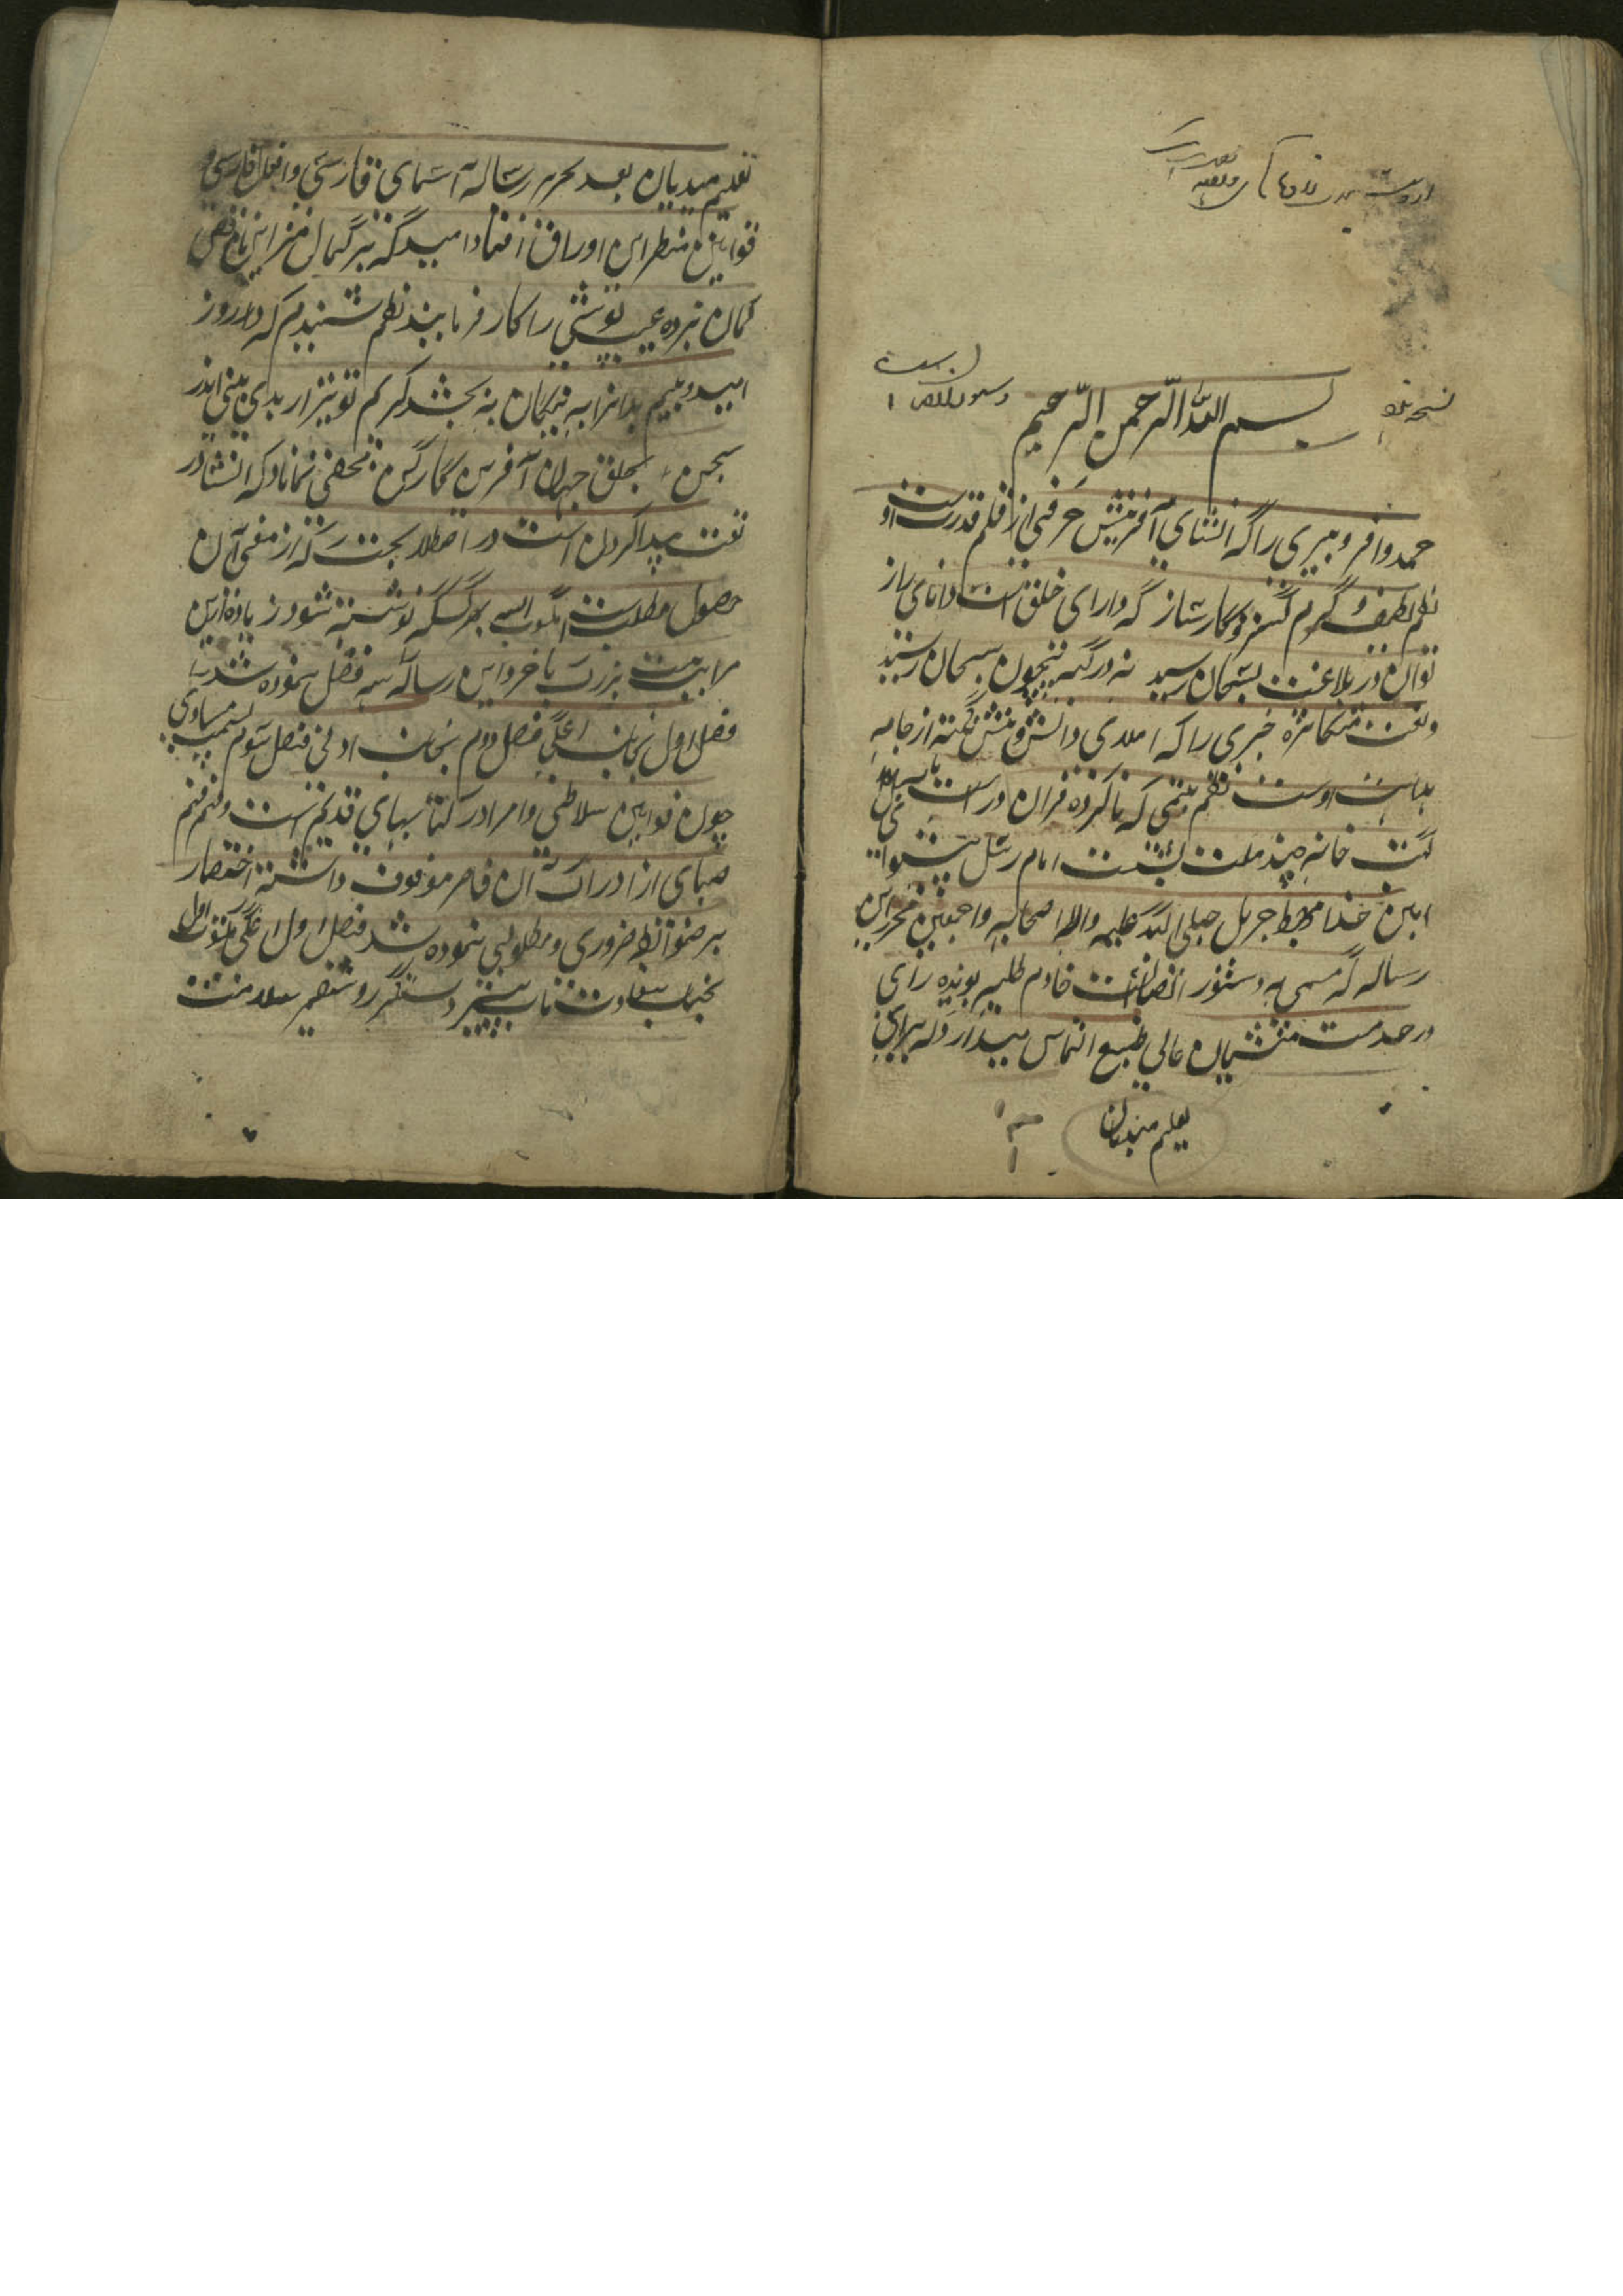 نسخه
بسم الله الرحمن الرحیم
حمد وافر دبیری را که انشای آفرینش حرفی از قلم قدرت او
نظم لطیف کرم گستر و کارساز که دارای خلق است و دانای راز
توان در بلاغت بسحبان رسید نه در کنه بیچون سبحان رسید
و نعت متکاثره خبری را که املای دانش و بینش نکته از جامه
اوست نظم یتیمی که ناکرده قران درست
کتب خانه چند ملت بشست امام رسل پیشوای
امین خدا مهبط جبرئیل صلی الله علیه واله اصحابه واجمعین محرر این
رساله که مسمی به دستور الصبیان است خادم طلبه بونده رای
در خدمت منشیان عالی طبع التماس میدارد که برای
تعلیم مبتدیان
تعلیم مبتدیان بعد تحریر رساله اسمای فارسی وافعال فارسی و
قوانین این اوراق افتاد امید که بر کمال این ناقص
گمان نبرده عیب پوشی را کار فرمایند نظم شنیدم که در روز
امید و بیم بدان را به نیکان به بخشد کریم تو نیز ار بدی بینی اندر
سخن بخلق جهان آفرین کار کن مخفی نماناد که انشا در
لغت پیدا کردن است در اصطلاح که از آن
حصول مطلب بهر کسکه نوشته شود زیاده ازین
مراتب بزرگ یا خرد این رساله سه فصل نموده شد
فصل اول بجانب اعلی فصل دوم بجانب ادنی فصل سوم بسمت مساوی
چون قوانین سلاطین وامرا در کتابهای قدیم است و فهم
صبای از ادراک آن قاصر موقوف داشته اختصار
بر ضوابط ضروری و مطلوبی نموده شد فصل اول اعلی مکتوب اول
بجناب دستگیر روشنضمیر سلامت